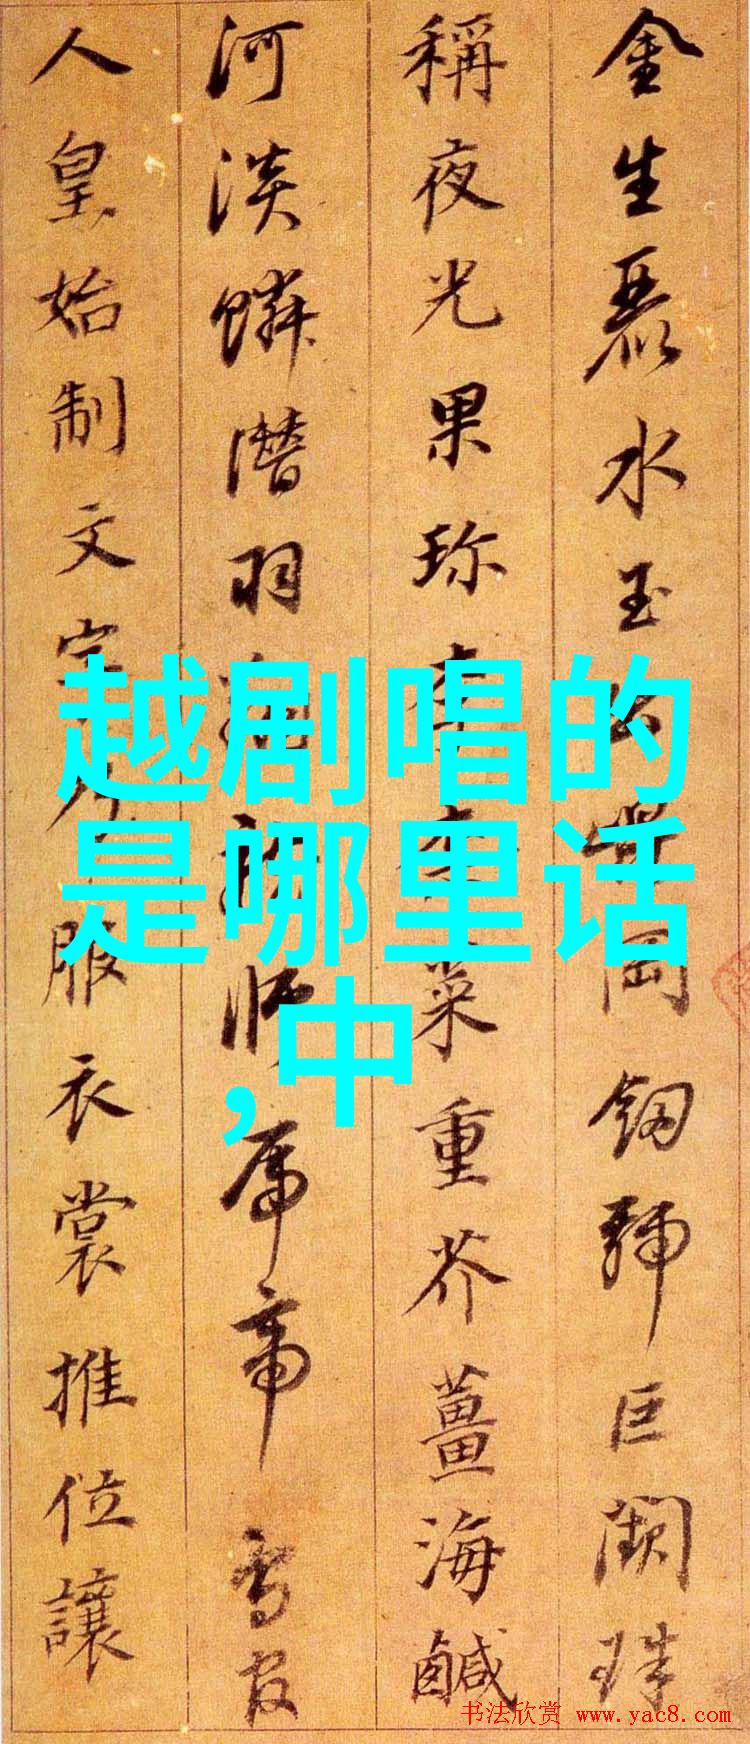 金生麗水玉出崑岡釼號巨闕珠
稱夜光果珍李柰菜重芥薑海鹹
河淡鱗潛羽翔龍師火帝鳥官
人皇始制文字乃服衣裳推位讓
越剧唱的
是哪里话
,中
书法欣赏 www.yac8.com